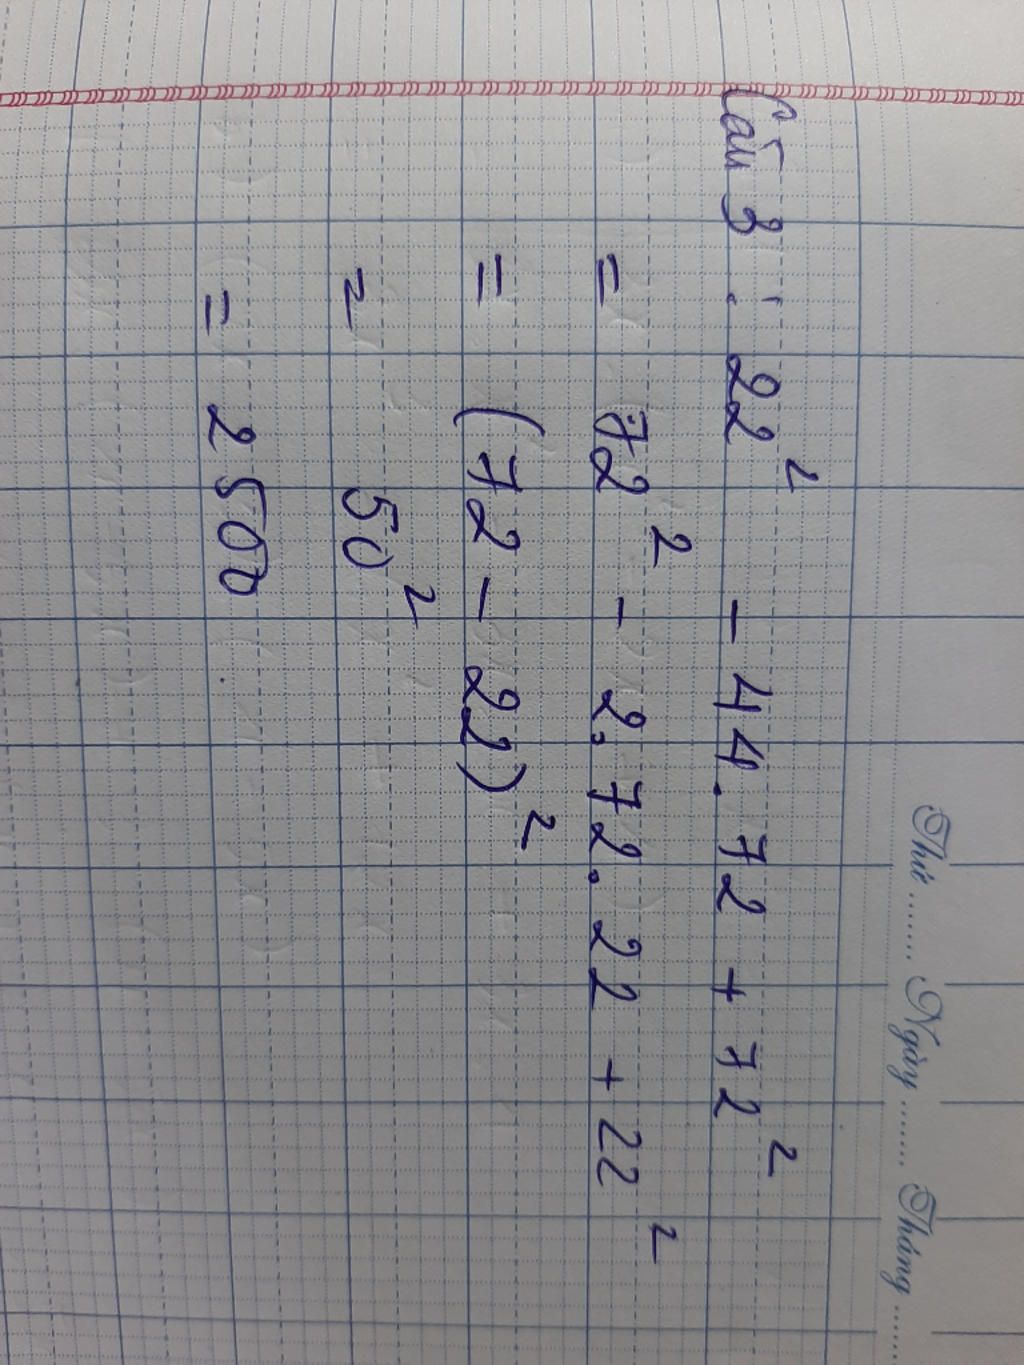 Thứ ...... Ngày ...... Tháng ......
Câu 3 : 22² - 44 . 72 + 72²
= 72² - 2.72.22 + 22²
= (72 - 22)²
= 50²
= 2500